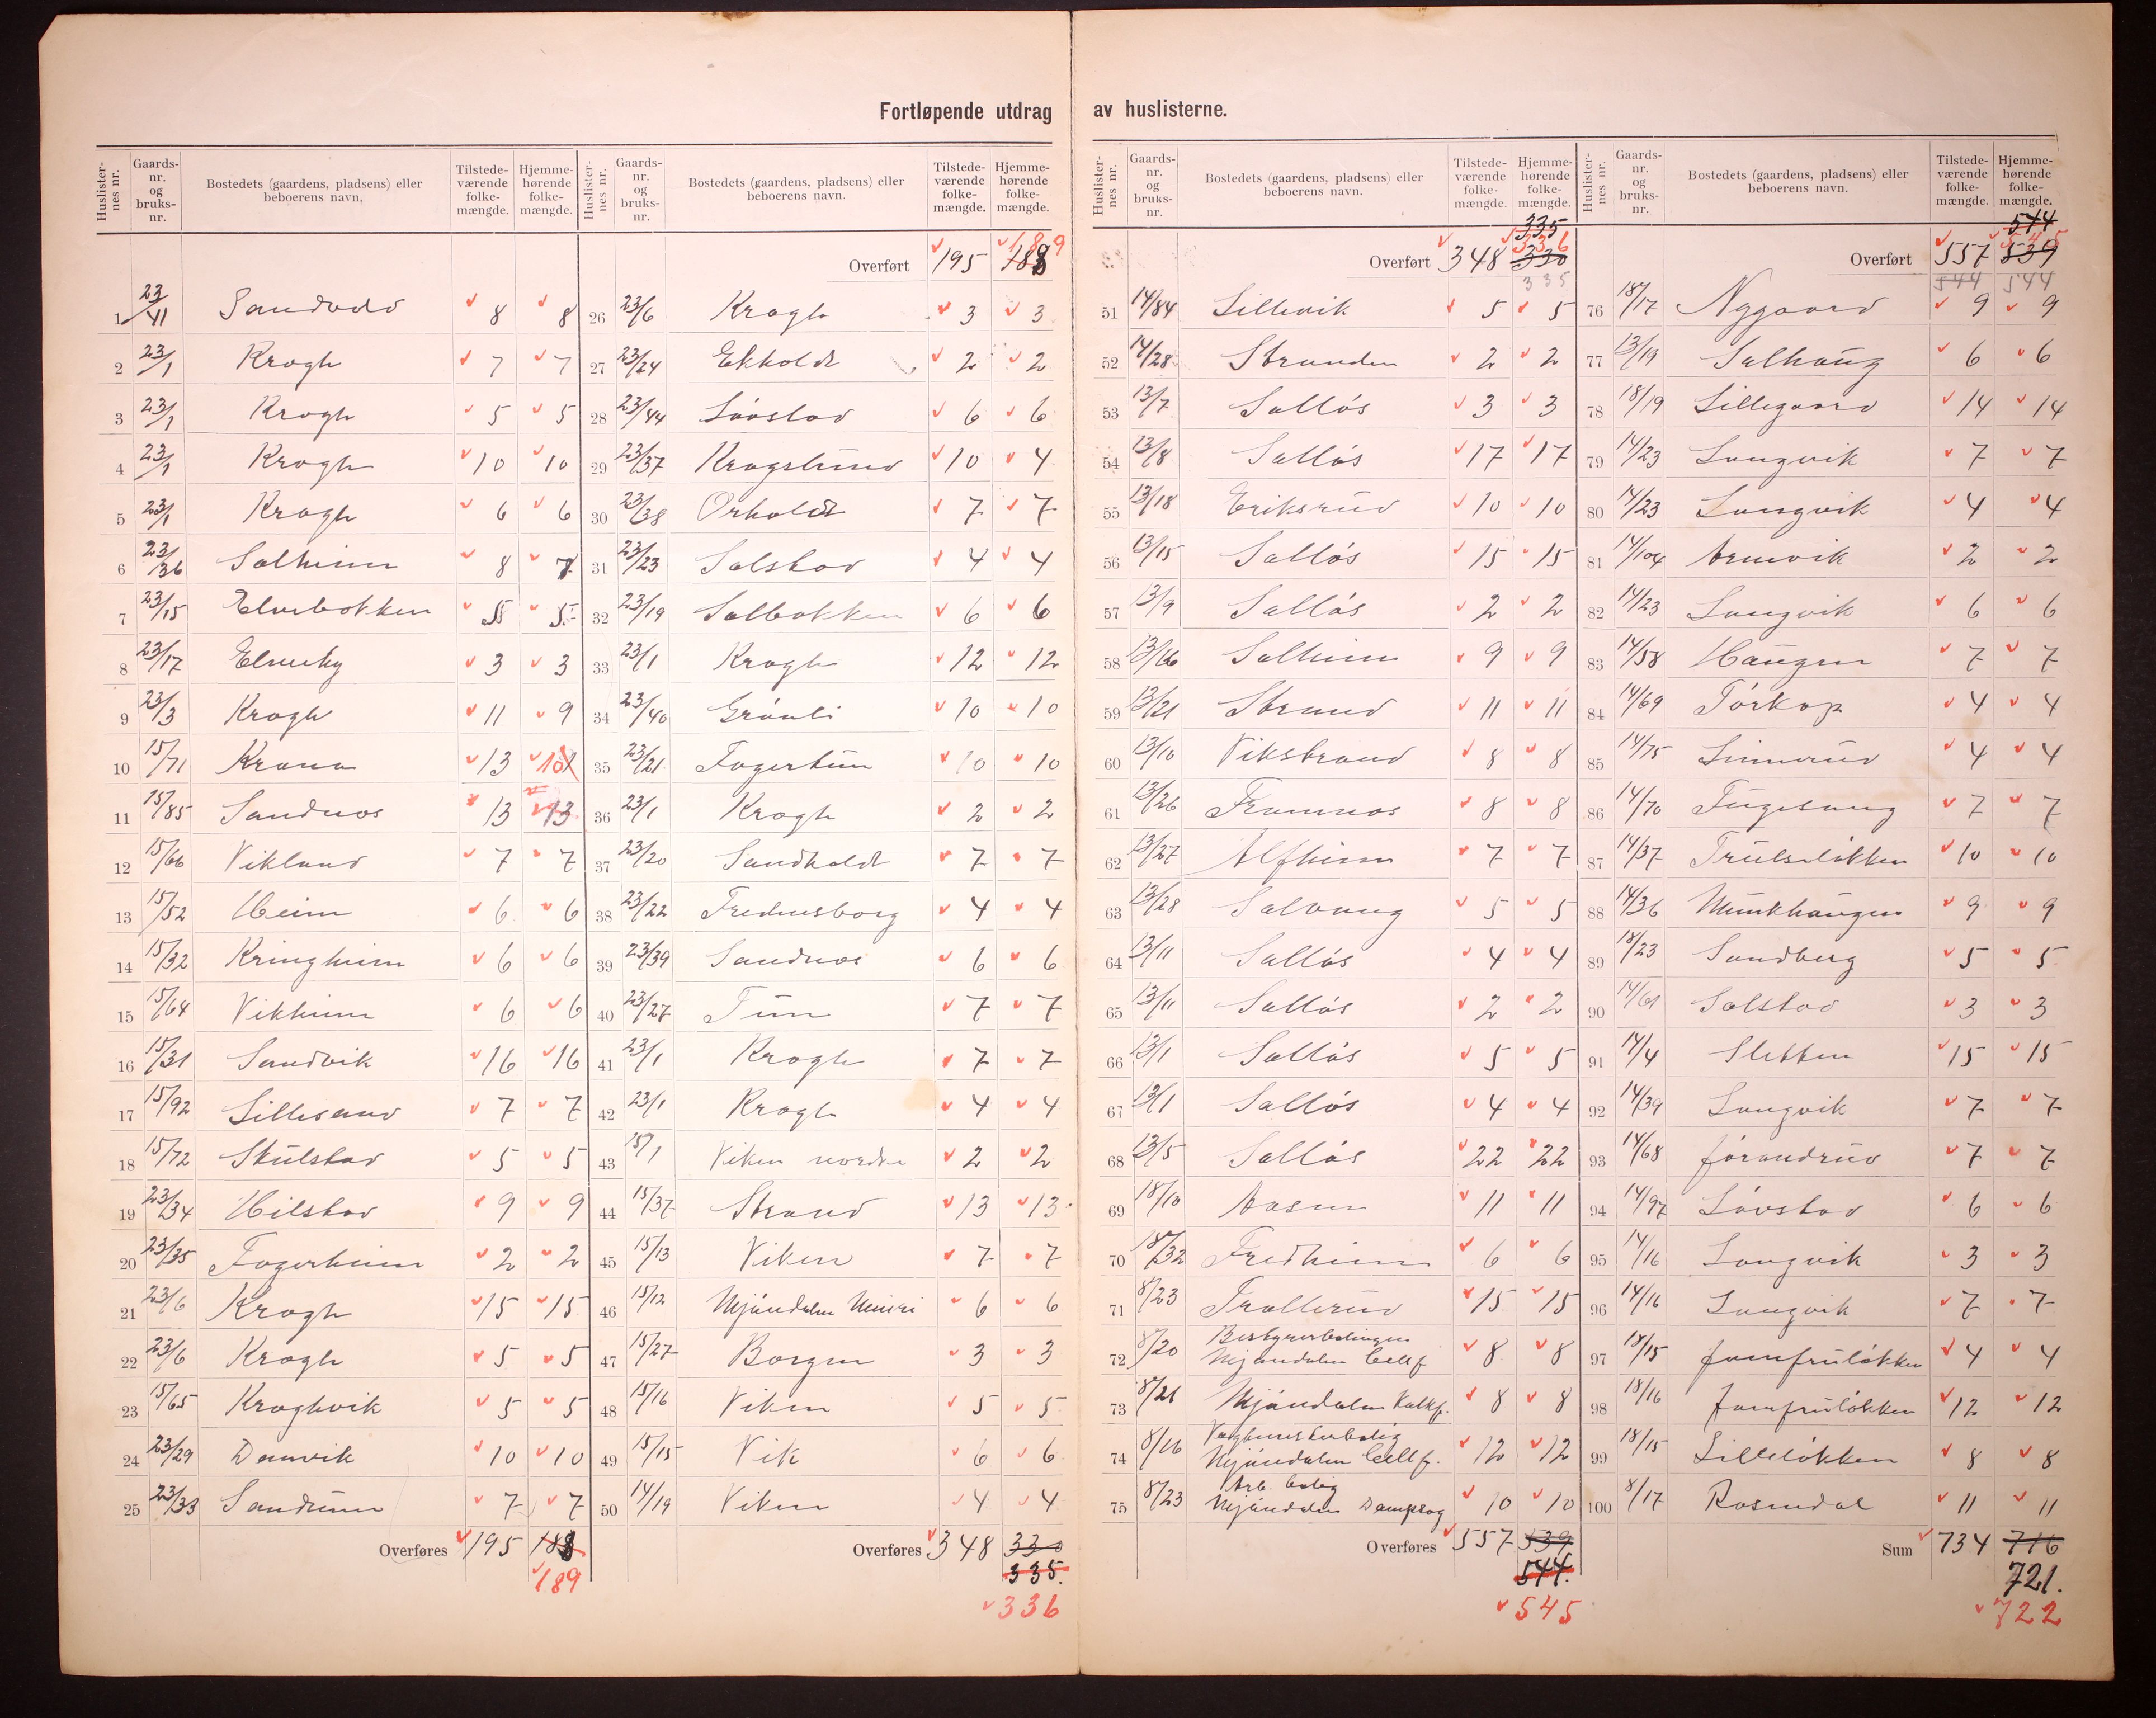 Fortløpende utdrag av huslisterne.
Huslister-nes nr. Gaards-nr. og bruks-nr. Bostedets (gaardens, pladsens) eller beboerens navn. Tilstede-værende folke-mængde. Hjemme-hørende folke-mængde.
1 23/41 8 8
2 23/1 Krogh 7 7
3 23/1 Krogh 5 5
4 23/1 Krogh 10 10
5 23/1 Krogh 6 6
6 23/36 Solheim 8 7
7 23/15 Elvebakken 5 5
8 23/17 3 3
9 23/3 Krogh 11 9
10 15/71 Krona 13
11 15/85 Sandnes 13 13
12 15/66 Vikland 7 7
13 15/52 Heim 6 6
14 15/32 Kringheim 6 6
15 15/64 Vikheim 6 6
16 15/31 Sandvik 16 16
17 15/92 Lillesand 7 7
18 15/72 Skulstad 5 5
19 23/34 Hilstad 9 9
20 23/35 Fagerheim 2 2
21 23/6 Krogh 15 15
22 23/6 Krogh 5 5
23 15/65 Kroghvik 5 5
24 23/29 Damvik 10 10
25 23/33 7 7
Overføres 195 188
189
Huslister-nes nr. Gaards-nr. og bruks-nr. Bostedets (gaardens, pladsens) eller beboerens navn. Tilstede-værende folke-mængde. Hjemme-hørende folke-mængde.
189
Overført 195 188
26 23/6 Krogh 3 3
27 23/24 Ekholdt 2 2
28 23/44 Løvstad 6 6
29 23/37 Krogslund 10 4
30 23/38 Orholdt 7 7
31 23/23 Solstad 4 4
32 23/19 Solbakken 6 6
33 23/1 Krogh 12 12
34 23/40 Grønli 10 10
35 23/21 Fagertun 10 10
36 23/1 Krogh 2 2
37 23/20 Sandholdt 7 7
38 23/22 Fredensborg 4 4
39 23/39 Sandnes 6 6
40 23/27 Tun 7 7
41 23/1 Krogh 7 7
42 23/1 Krogh 4 4
43 15/1 Viken nordre 2 2
44 15/37 Strand 13 13
45 15/13 Viken 7 7
46 15/12 Mjøndalen Meieri 6 6
47 15/27 Borgen 3 3
48 15/16 Viken 5 5
49 15/15 Vik 6 6
50 14/19 Viken 4 4
Overføres 348 330
335.
336
Huslister-nes nr. Gaards-nr. og bruks-nr. Bostedets (gaardens, pladsens) eller beboerens navn. Tilstede-værende folke-mængde. Hjemme-hørende folke-mængde.
335
336
Overført 348 330
335
51 14/84 Lillevik 5 5
52 14/28 Stranden 2 2
53 13/7 Solløs 3 3
54 13/8 Solløs 17 17
55 13/18 Eriksrud 10 10
56 13/15 Solløs 15 15
57 13/9 Solløs 2 2
58 13/66 Solheim 9 9
59 13/21 Strand 11 11
60 13/10 Vikstrand 8 8
61 13/26 Framnes 8 8
62 13/27 Alfheim 7 7
63 13/28 Solvang 5 5
64 13/11 Solløs 4 4
65 13/11 Solløs 2 2
66 13/1 Solløs 5 5
67 13/1 Solløs 4 4
68 13/5 Solløs 22 22
69 18/10 Aasen 11 11
70 18/32 Fredheim 6 6
71 8/23 Trollerud 15 15
72 8/20 Bestyrerboligen
Mjøndalen Cellf. 8 8
73 8/21 Mjøndalen Kalkf. 8 8
74 8/16 Vagtmesterbolig
Mjøndalen Cellf. 12 12
75 8/23 Arb. bolig
Mjøndalen Dampsag 10 10
Overføres 557 539
544.
545
Huslister-nes nr. Gaards-nr. og bruks-nr. Bostedets (gaardens, pladsens) eller beboerens navn. Tilstede-værende folke-mængde. Hjemme-hørende folke-mængde.
544
545
Overført 557 539
544 544
76 18/17 Nygaard 9 9
77 13/19 Solhaug 6 6
78 18/19 Lillegaard 14 14
79 14/23 Langvik 7 7
80 14/23 Langvik 4 4
81 14/104 Arnevik 2 2
82 14/23 Langvik 6 6
83 14/58 Haugen 7 7
84 14/69 Törkop 4 4
85 14/75 Linnerud 4 4
86 14/70 Fuglesang 7 7
87 14/37 Trulsløkken 10 10
88 14/36 Munkhaugen 9 9
89 18/23 Sandberg 5 5
90 14/61 Solstad 3 3
91 14/4 Sletten 15 15
92 14/39 Langvik 7 7
93 14/68 Jørandrud 7 7
94 14/97 Løvstad 6 6
95 14/16 Langvik 3 3
96 14/16 Langvik 7 7
97 18/15 Jomfruløkken 4 4
98 18/16 Jomfruløkken 12 12
99 18/15 Lilleløkken 8 8
100 8/17 Rosendal 11 11
Sum 734 716
721.
722